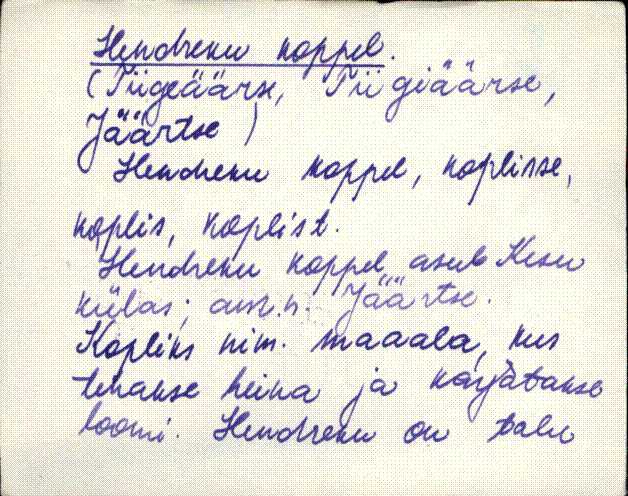 Hendreku koppel.
(Tiigeäärse, Tiigiäärse,
Jäärtse)
Hendreku koppel, koplisse,
koplis, koplist.
Hendreku koppel asub Kesu
külas; am.n. Jäärtse.
Kopliks nim. maaala, kus
tehakse heina ja karjatakse
loomi. Hendreku on talu